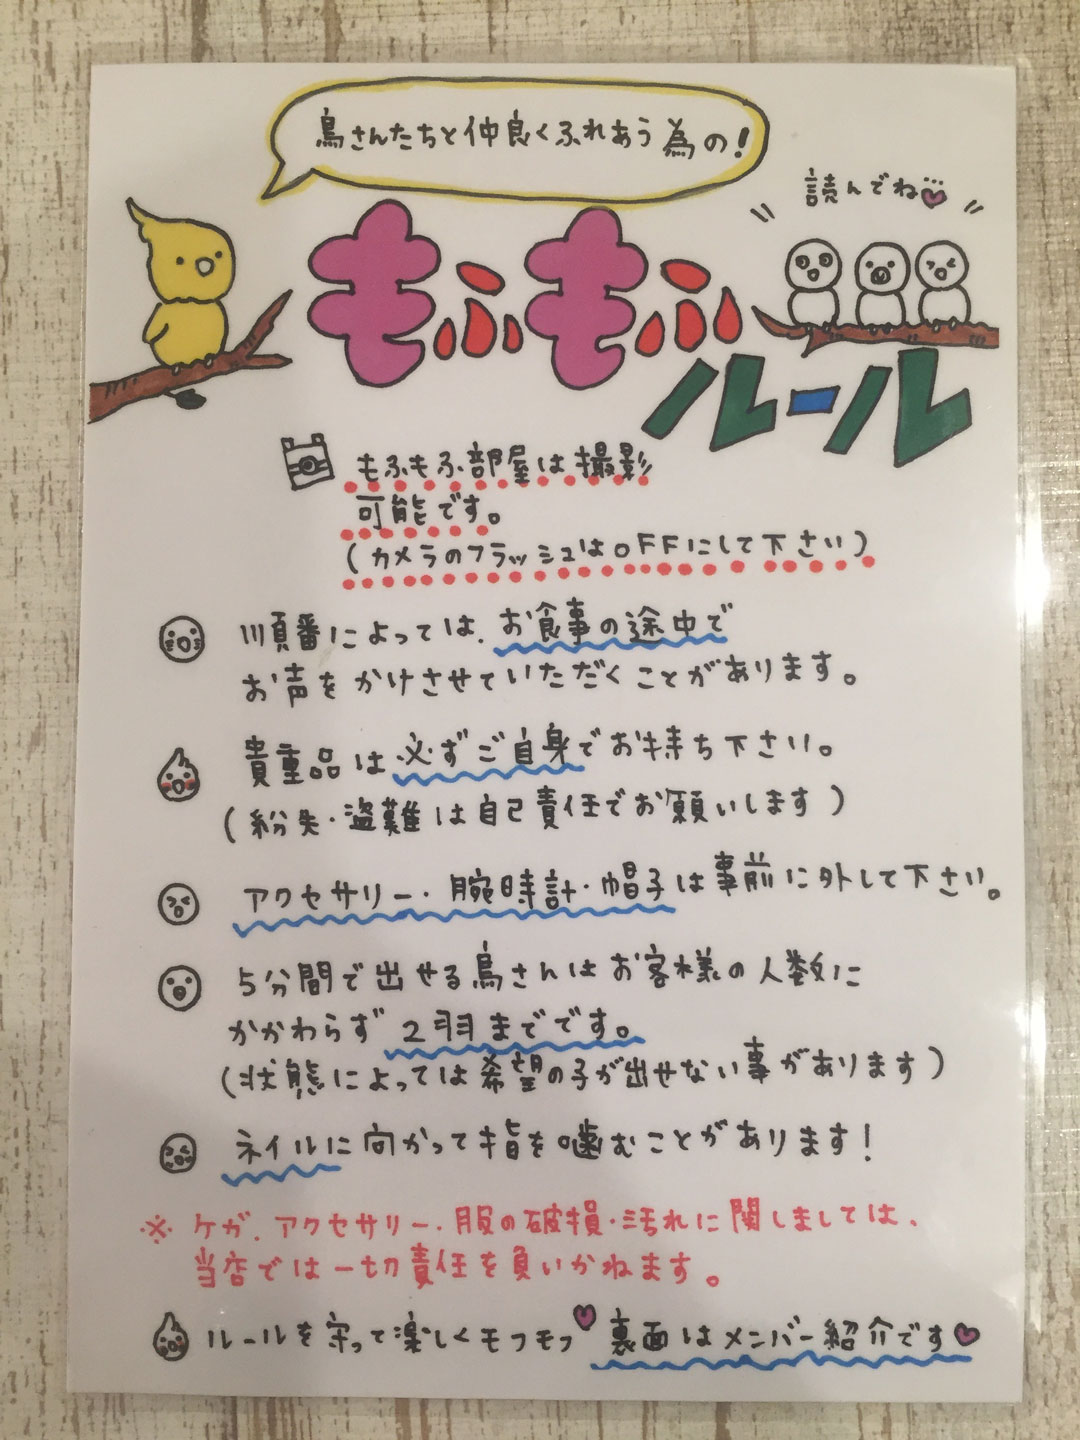 鳥さんたちと仲良くふれあう為の!
読んでね
もふもふ
ルール
もふもふ部屋は撮影
可能です。
(カメラのフラッシュはOFFにして下さい)
順番によっては、お食事の途中で
お声をかけさせていただくことがあります。
貴重品は必ずご自身でお持ち下さい。
(紛失・盗難は自己責任でお願いします)
アクセサリー・腕時計・帽子は事前に外して下さい。
5分間で出せる鳥さんはお客様の人数に
かかわらず2羽までです。
(状態によっては希望の子が出せない事があります)
ネイルに向かって指を噛むことがあります!
※ケガ、アクセサリー・服の破損・汚れに関しましては、
当店では一切責任を負いかねます。
ルールを守って楽しくモフモフ 裏面はメンバー紹介です